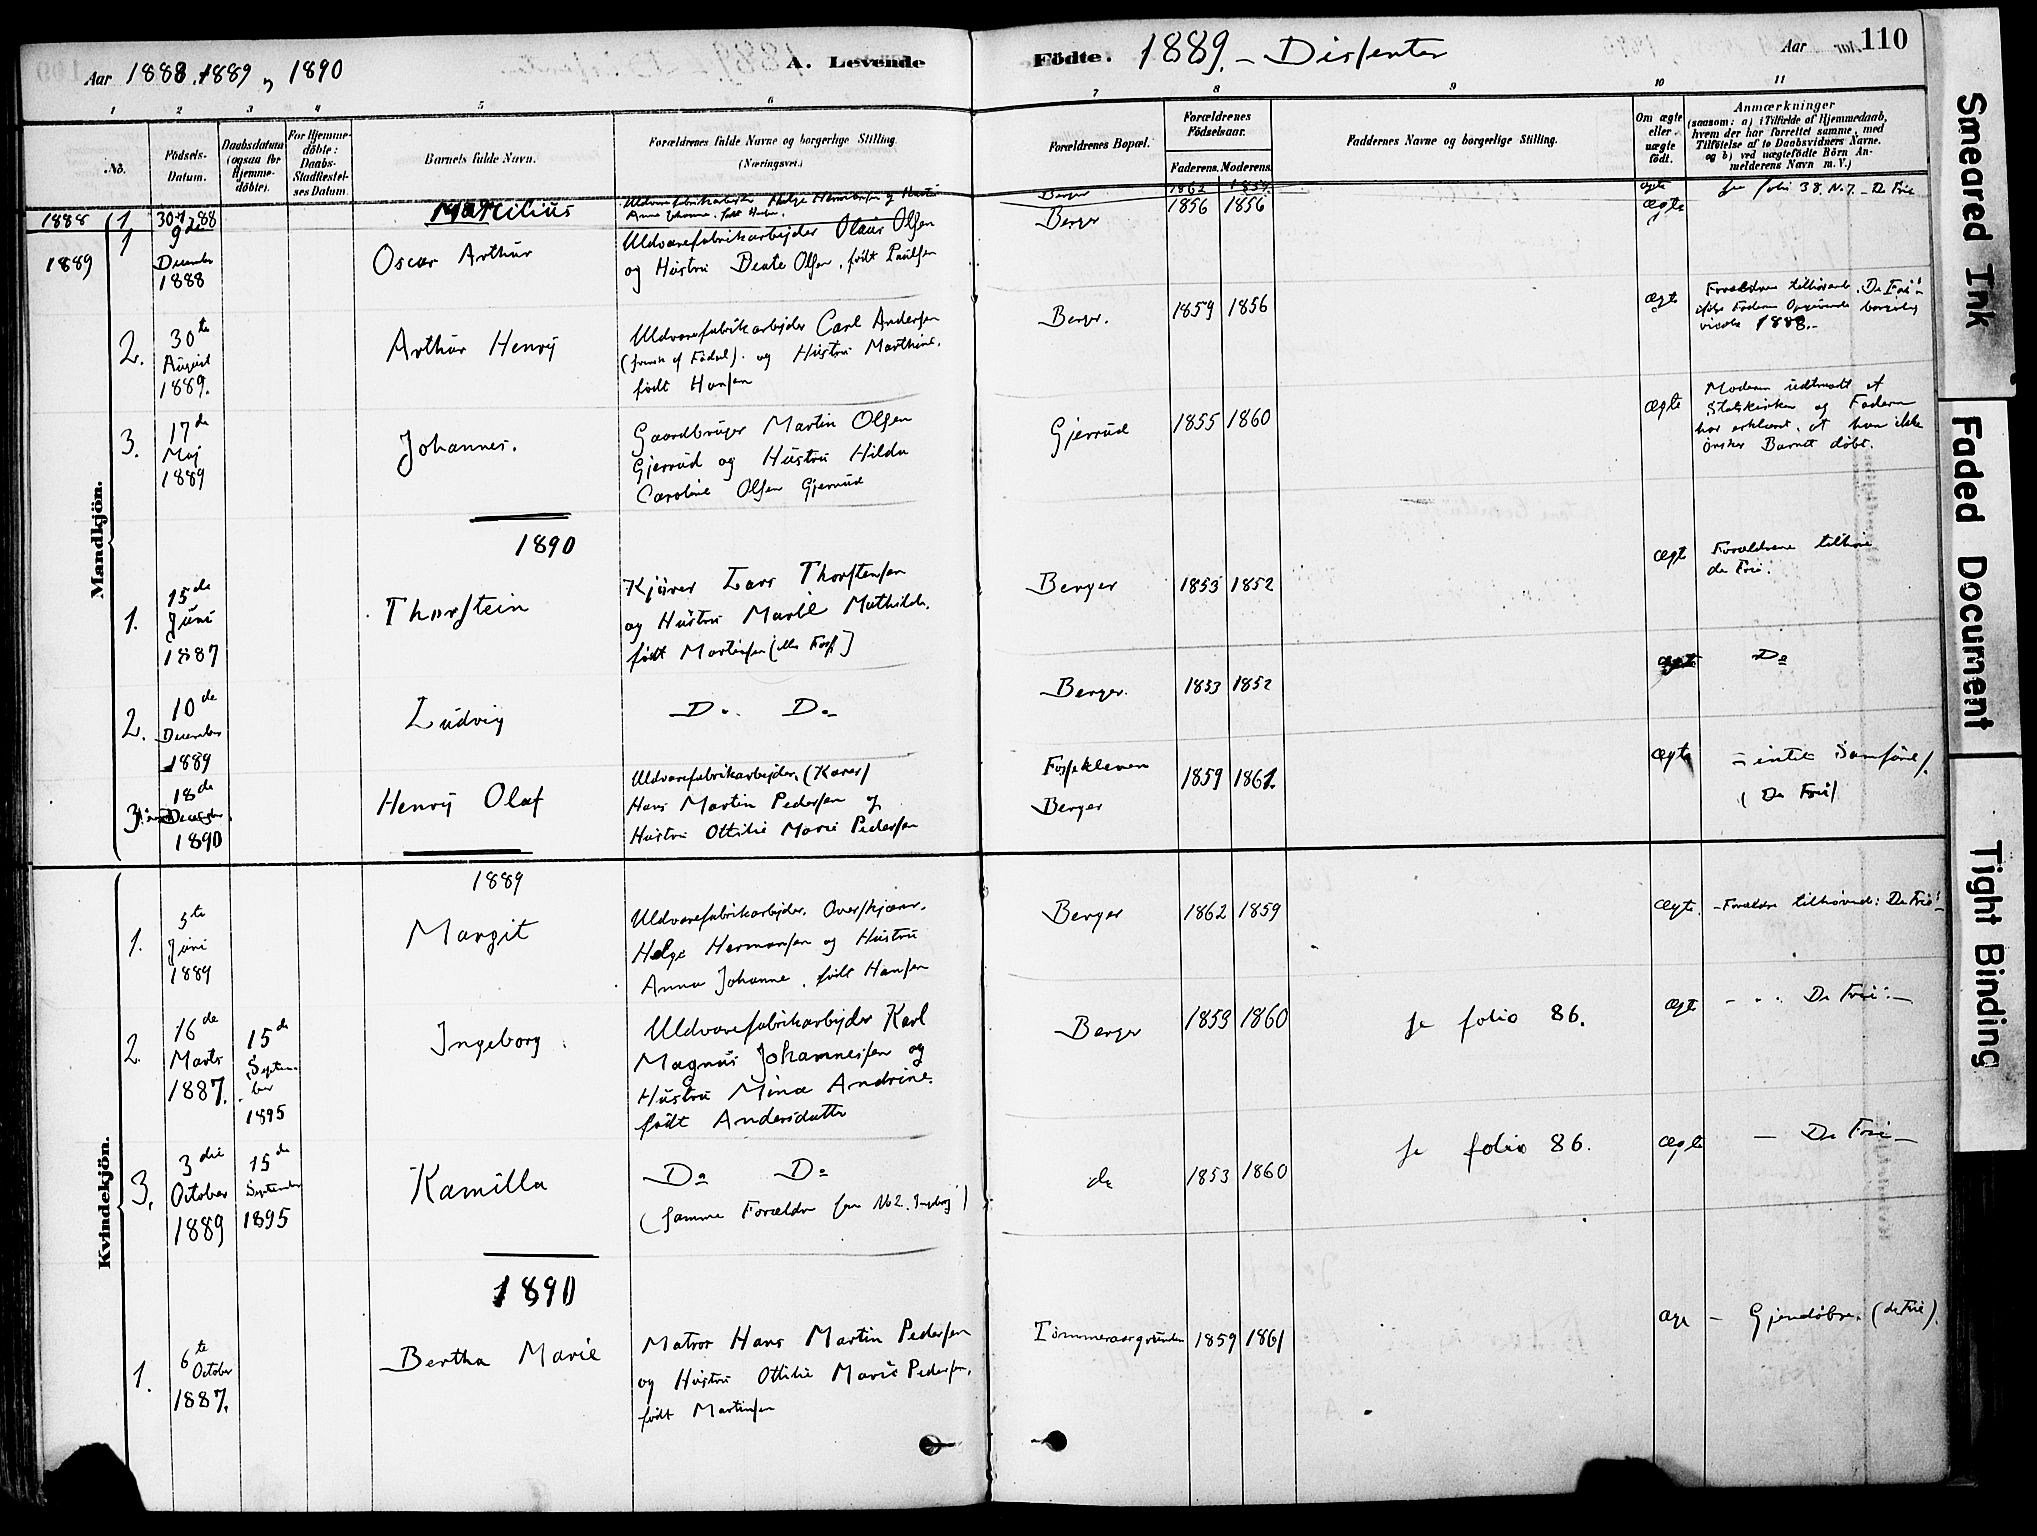 Aar 1888. 1889 og 1890
A. Levende
Födte. 1889. – Disfenter
Aar
110
1 2 3 4 5 6 7 8 9 10 11
No.
Födsels-
Datum.
Daabsdatum
(ogsaa for
Hjemme-
döbte).
For Hjemme-
döbte:
Daabs-
Stadfæstel-
ses Datum.
Barnets fulde Navn.
Forældrenes fulde Navne og borgerlige Stilling.
(Næringsvei.)
Forældrenes Bopæl.
Forældrenes
Födselsaar.
Faderens. Moderens.
Faddernes Navne og borgerlige Stilling.
Om ægte
eller
uægte
födt.
Anmærkninger
(saasom: a) i Tilfælde af Hjemmedaab,
hvem der har forrettet samme, med
Tilföielse af to Daabsvidners Navne.
og b) ved uægtefödte Börn An-
melderens Navn m. V.)
1888 1
Marcilius
Berger
1862
ægte
se folio 38. N. 7. – De Frie
1889
Mandkjön.
1
9de
December
1888
Oscar Arthur
Uldvarefabrikarbejder Olaus Olsen
og Hustru Beate Olsen, født Paulsen
Berger
1856 1856
ægte
2.
30te
August
1889.
Arthur Henry
Uldvarefabrikarbejder Carl Andersen
og Hustru Marthine,
født Hansen
Berger.
1859 1856
ægte
1888.–
3.
17de
Maj
1889
Johannes.
Gaardbruger Martin Olsen
Gjerrud og Hustru Hilda
Caroline Olsen Gjerrud
Gjerrud
1855 1860
ægte
Moderen udtraadt af
Statskirken og Faderen
har erklæret, at han ikke
ønsker Barnet døbt.
1890
1.
15de
Juni
1887
Thorstein
Kjører Lars Thorstensen
og Hustru Marie Mathilde,
født Martinsen
Berger
1853 1852
ægte
Forældrene tilhøre
de Frie.
2.
10de
December
1889
Ludvig
Do. Do
Berger.
1853 1852
ægte
Do
3.
18de
1890
Henry Olaf
Uldvarefabrikarbejder,
Hans Martin Pedersen og
Hustru Ottilie Marie Pedersen
Fossekleven
Berger
1859 1861.
ægte
– intet Samfund.
(De Frie)
Kvindekjön.
1889
1.
5te
Juni
1889
Margit
Uldvarefabrikarbejder,
Helge Hermansen og Hustru
Anna Johanne, født Hansen
Berger
1862 1859
ægte.
– Forældre tilhørende: De Frie!–
2.
16de
Marts
1887.
15de
Septem-
ber
1895
Ingeborg
Uldvarefabrikarbejder Karl
Magnus Johannesen og
Hustru Mina Andrine,
født Andersdatter
Berger
1853 1860
se folio 86.
ægte
– De Frie. –
3.
3die
October
1889
15de
September
1895
Kamilla
Do Do
(samme Forældre som No 2. Ingeborg)
do
1853 1860
se folio 86.
ægte
– De Frie –
1890
1.
6te
October
1887.
Bertha Marie
Matros Hans Martin Pedersen
og Hustru Ottilie Marie Pedersen,
født Martinsen
Tømmeraasgrunden
1859 1861
– Gjendøbere. (de Frie).
Smeared Ink
Faded Document
Tight Binding